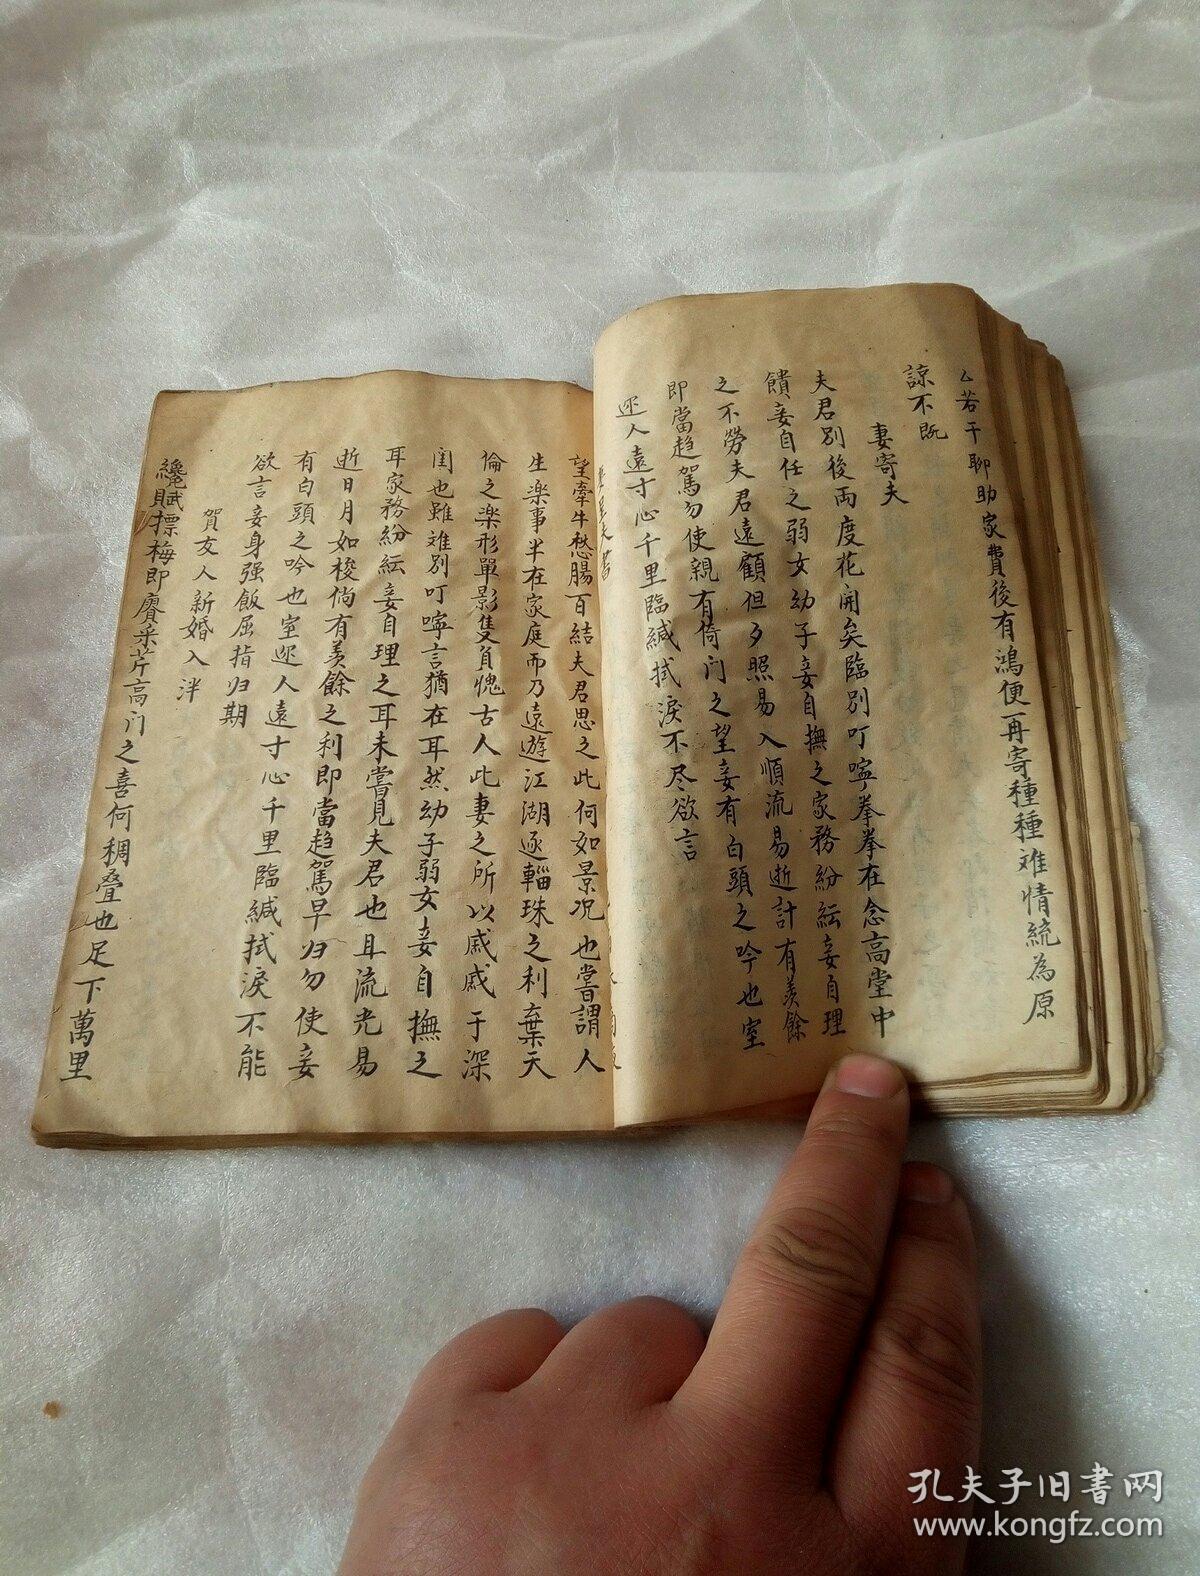 厶若干聊助家費後有鴻便再寄種種难情統為原
諒不既
妻寄夫
夫君別後両度花開矣臨別叮嚀拳拳在念高堂中
饋妾自任之弱女幼子妾自撫之家務紛紜妾自理
之不勞夫君遠顧但夕照易入順流易逝計有羨餘
即當趋駕勿使親有倚门之望妾有白頭之吟也室
迩人遠寸心千里臨緘拭淚不尽欲言
望牽牛愁腸百結夫君思之此何如景况也嘗謂人
生楽事半在家庭而乃遠遊江湖逐輜珠之利棄天
倫之楽形單影隻負愧古人此妻之所以戚戚于深
闺也雖难別叮嚀言猶在耳然幼子弱女妾自撫之
耳家務紛紜妾自理之耳未嘗見夫君也且流光易
逝日月如梭倘有羨餘之利即當趋駕早归勿使妾
有白頭之吟也室迩人遠寸心千里臨緘拭淚不能
欲言妾身强飯屈指归期
賀友人新婚入泮
纔賦摽梅即賡采芹高门之喜何稠叠也足下萬里
孔夫子旧書网
www.kongfz.com